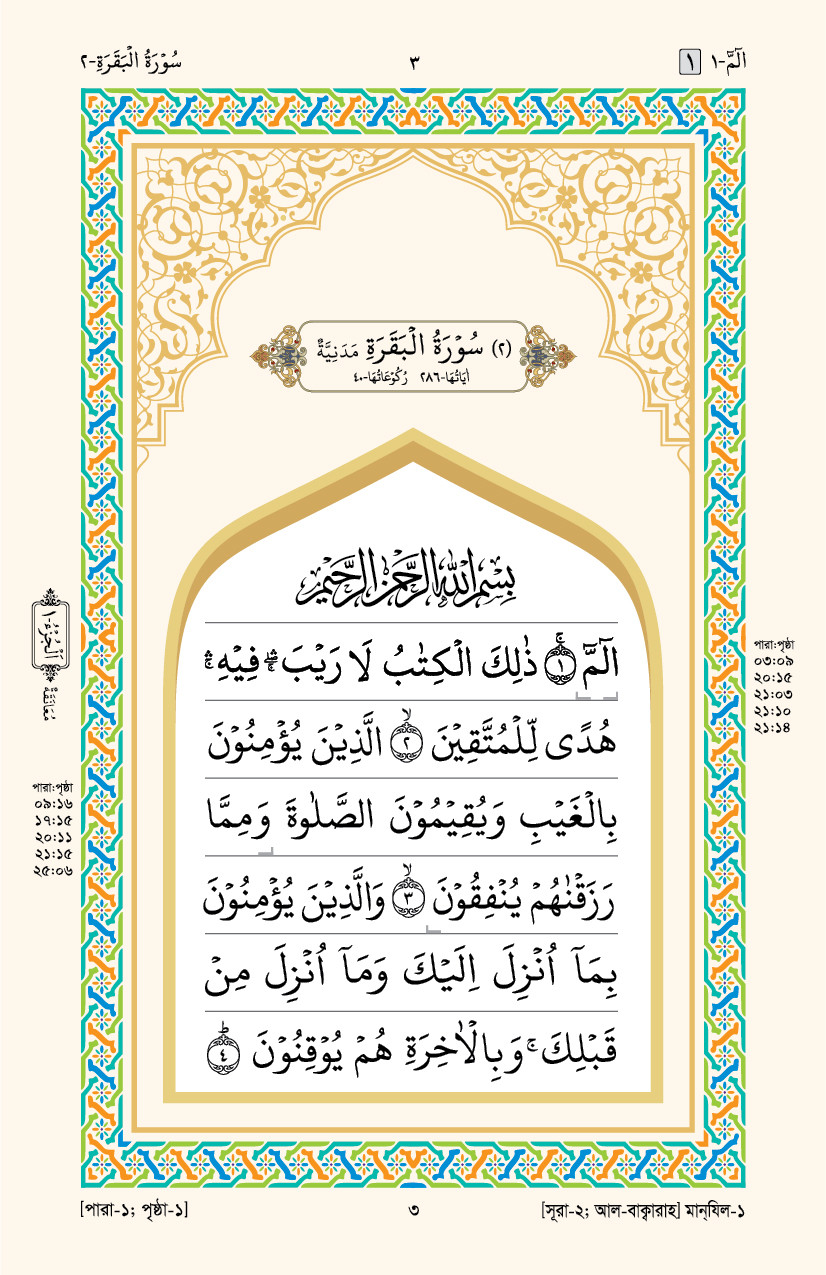 الٓمّٓ-١ ١
٣
سُوْرَةُ الْبَقَرَةِ-٢
(٢) سُوْرَةُ الْبَقَرَةِ مَدَنِيَّةٌ
اٰيَاتُهَا-٢٨٦ رُكُوْعَاتُهَا-٤٠
بِسْمِ اللّٰهِ الرَّحْمٰنِ الرَّحِيْمِ
الٓمّٓ ۚ﴿١﴾ ذٰلِكَ الْكِتٰبُ لَا رَيْبَ ۛۖ فِيْهِ ۛۚ
هُدًى لِّلْمُتَّقِيْنَ ۙ﴿٢﴾ الَّذِيْنَ يُؤْمِنُوْنَ
بِالْغَيْبِ وَيُقِيْمُوْنَ الصَّلٰوةَ وَمِمَّا
رَزَقْنٰهُمْ يُنْفِقُوْنَ ۙ﴿٣﴾ وَالَّذِيْنَ يُؤْمِنُوْنَ
بِمَآ اُنْزِلَ اِلَيْكَ وَمَآ اُنْزِلَ مِنْ
قَبْلِكَ ۚ وَبِالْاٰخِرَةِ هُمْ يُوْقِنُوْنَ ؕ﴿٤﴾
পারা:পৃষ্ঠা
০৩:০৯
২০:১৫
২১:০৩
২১:১০
২১:১৪
اَلْجُزْءُ-١
مُعَانَقَةٌ
পারা:পৃষ্ঠা
০৯:১৬
১৭:১৫
২০:১১
২১:১৫
২৫:০৬
[পারা-১; পৃষ্ঠা-১]
৩
[সূরা-২; আল-বাক্বারাহ] মান্‌যিল-১